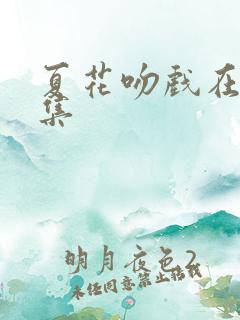 夏花吻戏在
集
明月夜色2
未经同意禁止转载